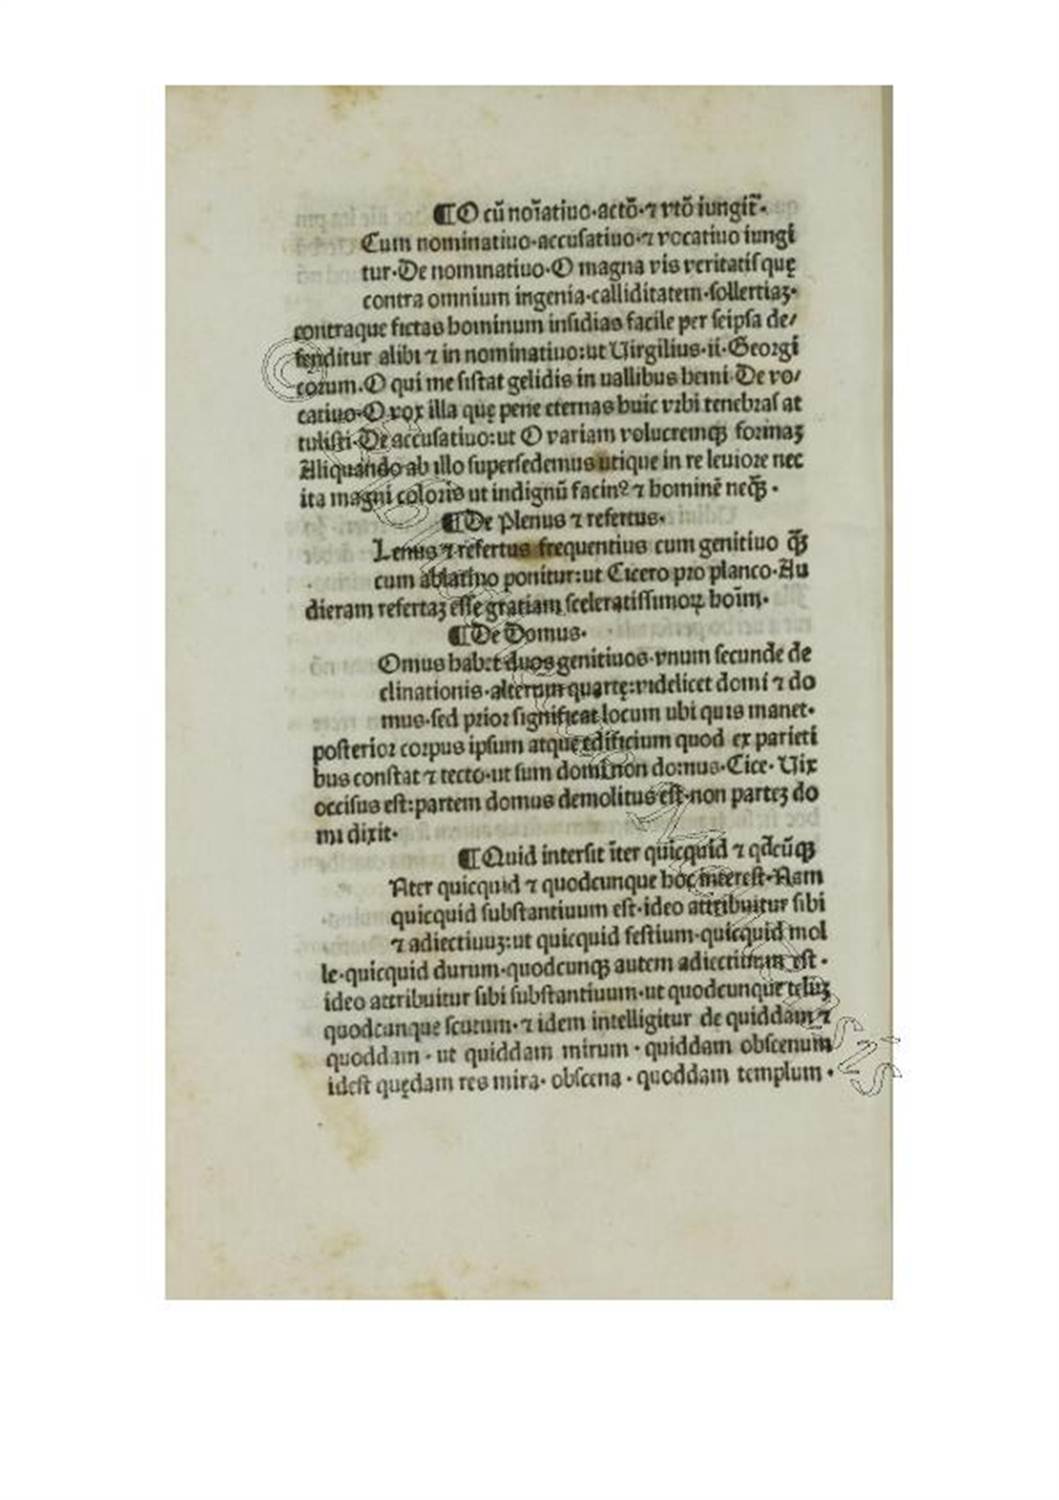 ¶O cū noīatiuo·actō·⁊ vtō iungit̄·
Cum nominatiuo·accusatiuo·⁊ vocatiuo iungi
tur·De nominatiuo·O magna vis veritatis quę
contra omnium ingenia·calliditatem·sollertiaꝫ·
contraque fictas hominum insidias facile per seipsa de/
fenditur alibi ⁊ in nominatiuo:ut Uirgilius·ii·Georgi
corum·O qui me sistat gelidis in uallibus hemi·De vo/
catiuo·O vox illa quę pene eternas huic vrbi tenebras at
tulisti·De accusatiuo:ut O variam volucremqꝫ formaꝫ
Aliquando ab illo supersedemus utique in re leuiore nec
ita magni coloris ut indignū facinꝰ ⁊ hominē neqꝫ̄·
¶De Plenus ⁊ refertus·
Lenus ⁊ refertus frequentius cum genitiuo qꝫ̄
cum ablatiuo ponitur:ut Cicero pro planco·Au
dieram refertaꝫ esse gratiam sceleratissimoꝝ hoīm·
¶De Domus·
Omus habet duos genitiuos·vnum secunde de
clinationis·alterum quartę:videlicet domi ⁊ do
mus·sed prior significat locum ubi quis manet·
posterior corpus ipsum atque edificium quod ex parieti
bus constat ⁊ tecto·ut sum domi non domus·Cice·Uix
occisus est:partem domus demolitus est·non parteꝫ do
mi dixit·
¶Quid intersit īter quicquid ⁊ qd̄cūqꝫ
Nter quicquid ⁊ quodcunque hoc interest·Nam
quicquid substantiuum est·ideo attribuitur sibi
⁊ adiectiuuꝫ:ut quicquid festium·quicquid mol
le·quicquid durum·quodcunqꝫ autem adiectiuum est·
ideo attribuitur sibi substantiuum·ut quodcunque teluꝫ
quodcunque scutum·⁊ idem intelligitur de quiddam ⁊
quoddam·ut quiddam mirum·quiddam obscenum
idest quędam res mira·obscena·quoddam templum·